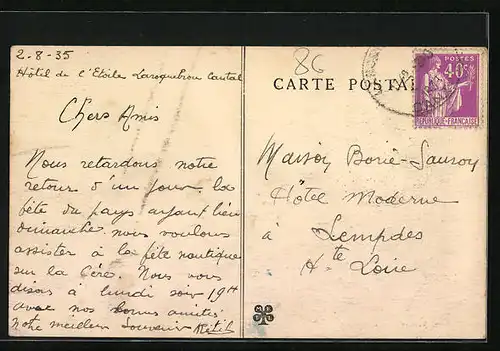 2-8-35
Hôtel de l'Etoile Laroquebrou Cantal
Chers Amis
Nous retardons notre
retour d'un jour, la
fête du pays ayant lieu
dimanche nous voulons
assister à la fête nautique
sur la Cère. Nous vous
disons à lundi soir 19H
avec nos bonnes amitiés
Notre meilleur Souvenir
86
CARTE POSTAL
POSTES
40c
REPUBLIQUE FRANÇAISE
Maison Borie-Sauroy
Hôtel Moderne
à Lempdes
Hte Loire